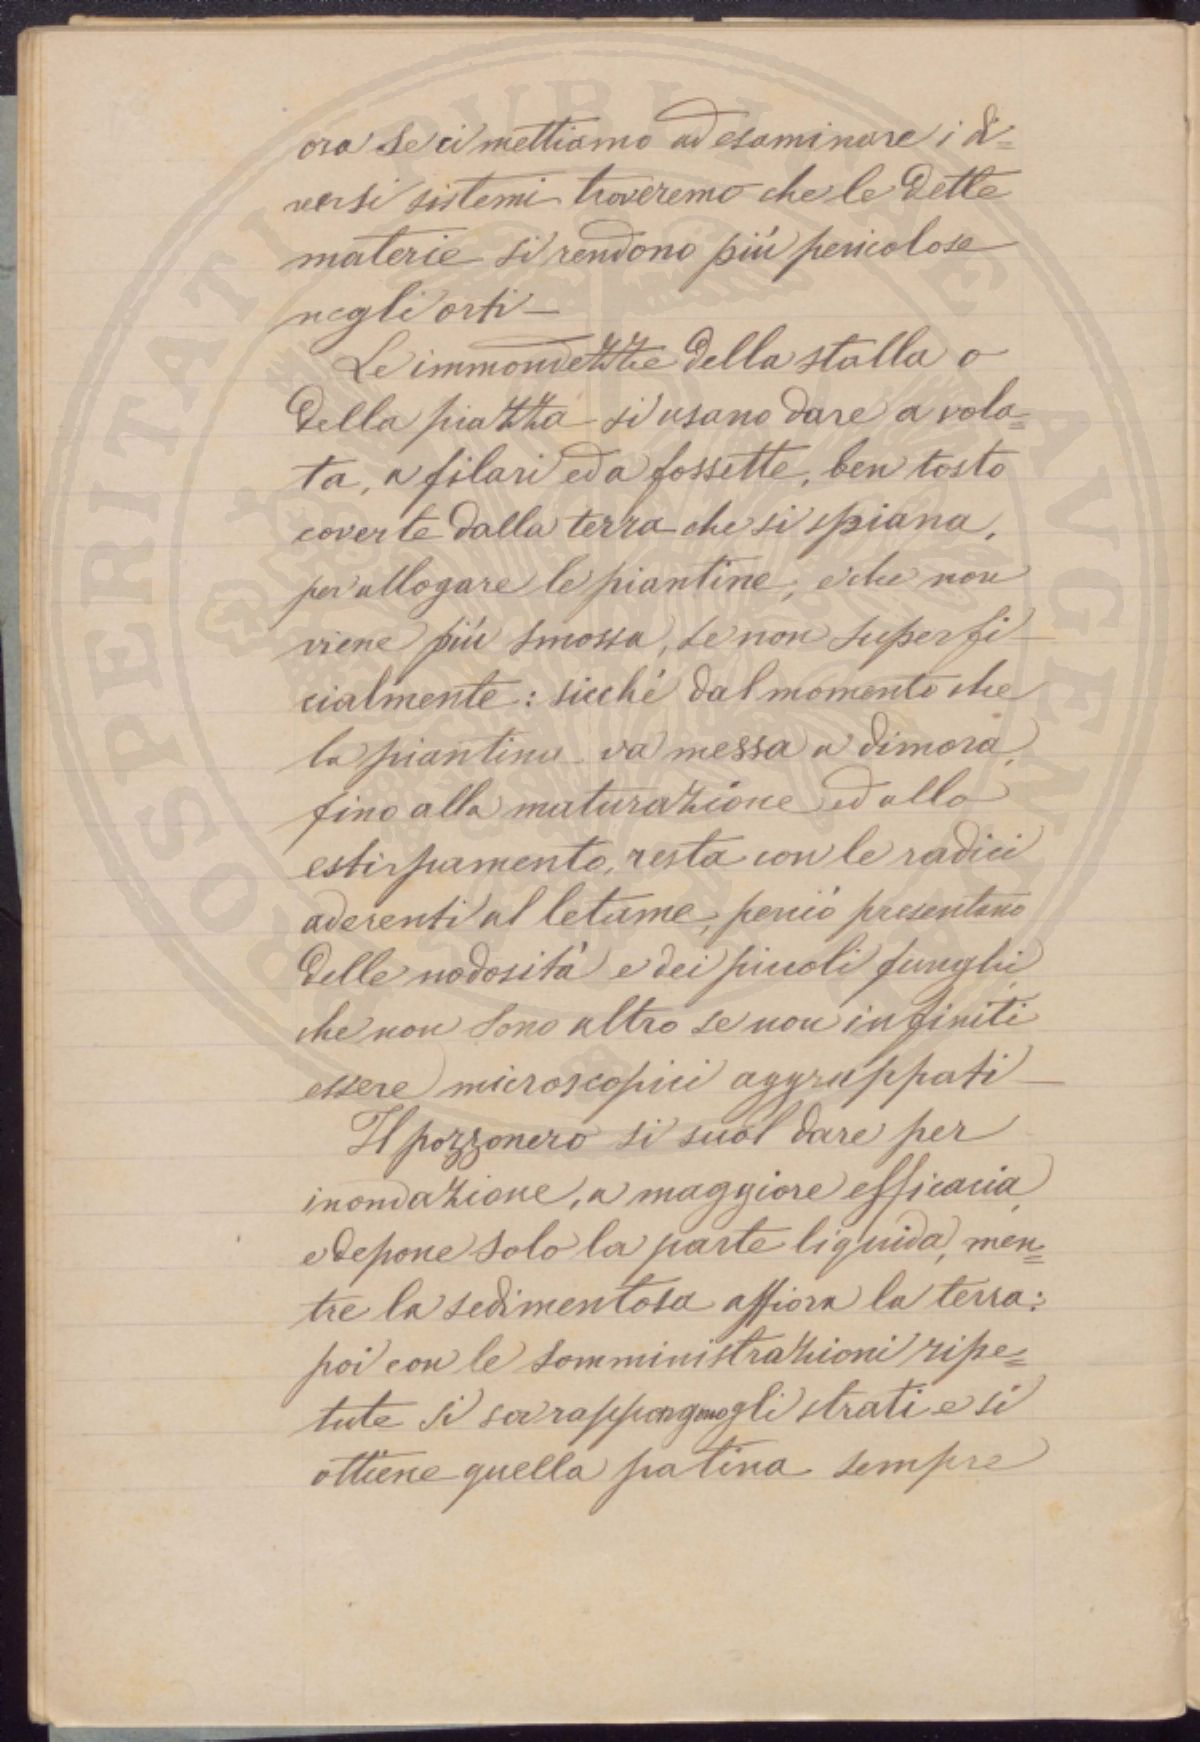 ora se ci mettiamo ad esaminare i di=
versi sistemi troveremo che le dette
materie si rendono più pericolose
negli orti —
Le immondezzie della stalla o
della piazza si usano dare a vola=
ta, a filari ed a fossette, ben tosto
coverte dalla terra che si spiana,
per allogare le piantine, e che non
viene più smossa, se non superfi—
cialmente: sicché dal momento che
la piantina va messa a dimora,
fino alla maturazione ed allo
estirpamento, resta con le radici
aderenti al letame, perciò presentano
delle nodosità e dei piccoli funghi,
che non sono altro se non infiniti
essere microscopici aggruppati —
Il pozzonero si suol dare per
inondazione, a maggiore efficacia,
e depone solo la parte liquida, men=
tre la sedimentosa affiora la terra:
poi con le somministrazioni ripe=
tute si sovrappongono gli strati e si
ottiene quella patina sempre
PROSPERITATI PVBLICAE AVGENDAE